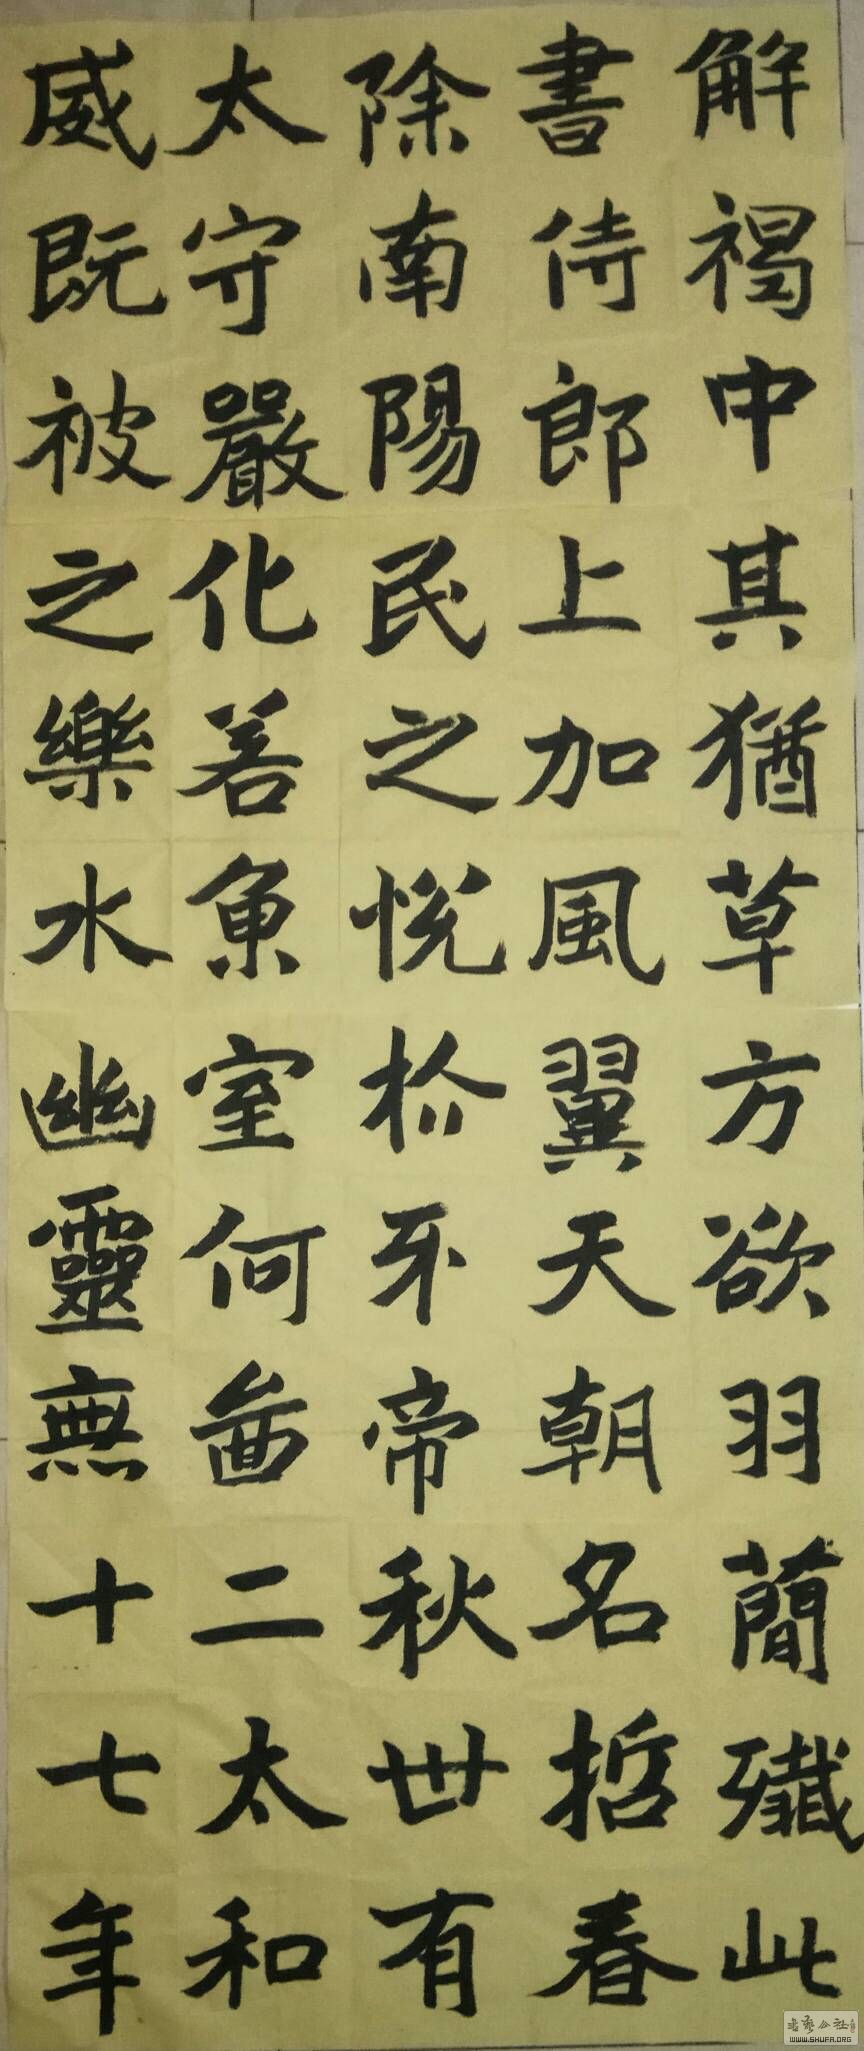 解褐中其猶草方欲羽蕳殲此
書侍郎上加風翼天朝名哲春
除南陽民之悅於牙帝秋世有
太守嚴化若魚室何啚二太和
威既被之樂水幽靈無十七年
书艺公社
WWW.SHUFA.ORG